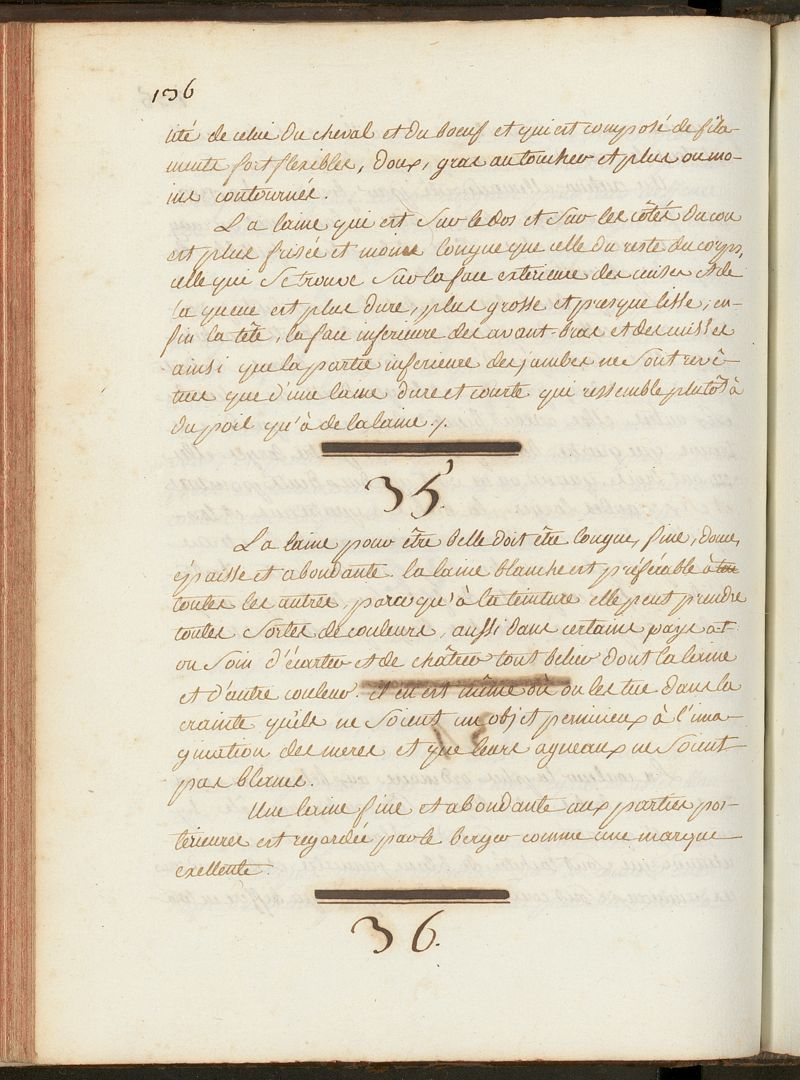 136
ité de celui du cheval et du boeuf et qui est composé de fila-
ments fort flexibles, doux, gras au toucher et plus ou mo-
ins contournés.
La laine qui est sur le dos et sur les côtés du cou
est plus frisée et moins longue que celle du reste du corps,
celle qui se trouve sur la face exterieure des cuisses et de
la queue est plus dure, plus grosse et presque lisse; en-
fin la tête, la face inferieure des avant-bras et des cuisses
ainsi que la partie inferieure des jambes ne sont revê-
tues que d'une laine dure et courte qui ressemble plutôt à
du poil qu'à de la laine./.
35.
La laine pour être belle doit être longue, fine, douce,
épaisse et abondante. la laine blanche est préférable à
toutes les autres, parce qu'à la teinture elle peut prendre
toutes sortes de couleurs, aussi dans certains pays a-t-
on soin d'écarter et de châtrer tout belier dont la laine
est d'autre couleur. il en est même où on les tue dans la
crainte qu'ils ne soient un objet pernicieux à l'ima-
gination des meres et que leurs agneaux ne soient
pas blancs.
Une laine fine et abondante aux parties pos-
terieures est regardée par le berger comme une marque
exellente.
36.